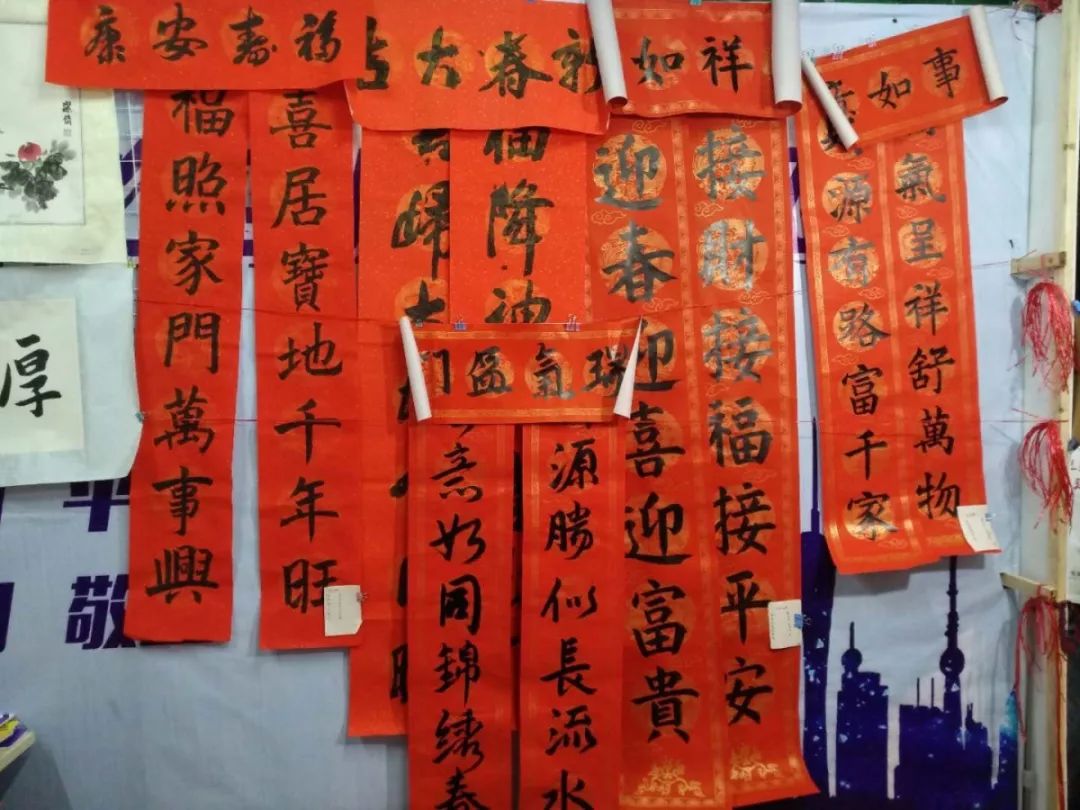 福寿安康
喜居寶地千年旺
福照家門萬事興
新春大吉
福降神
歸大
祥如
接財接福接平安
迎春迎喜迎富貴
事如
氣呈祥舒萬物
源有路富千家
瑞氣盈門
源勝似長流水
意如同錦繡春
厚
敬